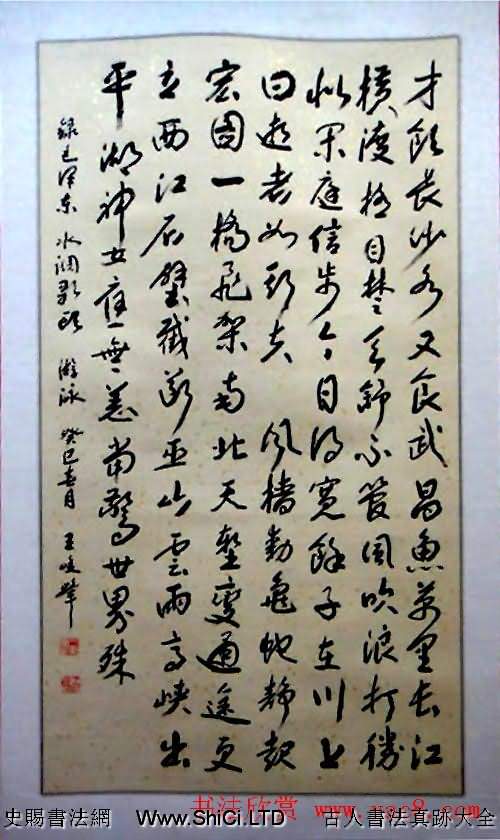 才飲長沙水又食武昌魚萬里長江
横渡極目楚天舒不管風吹浪打勝
似閑庭信步今日得寬餘子在川上
曰逝者如斯夫 風檣動龜蛇静起
宏图一橋飛架南北天塹變通途更
立西江石壁截斷巫山雲雨高峡出
平湖神女應無恙當驚世界殊
録毛泽东 水调歌頭 游泳 癸巳春月 王
书法欣赏
史賜書法網 Www.ShiCi.LTD 古人書法真跡大全